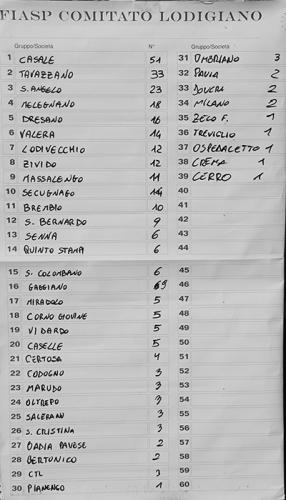 FIASP COMITATO LODIGIANO
Gruppo/Società N° Gruppo/Società N°
1 CASALE 51
2 TAVAZZANO 33
3 S. ANGELO 23
4 MELEGNANO 18
5 DRESANO 16
6 VALERA 14
7 LODIVECCHIO 12
8 ZIVIDO 12
9 MASSALENGO 11
10 SECUGNAGO
11 BREMBIO 10
12 S. BERNARDO 9
13 SENNA 6
14 QUINTO STAMP 6
15 S. COLOMBANO 6
16 GAGGIANO
17 MIRADOLO 5
18 CORNO GIOVINE 5
19 VIDARDO 5
20 CASELLE 5
21 CERTOSA 4
22 CODOGNO 3
23 MARUDO 3
24 OLTREPO 3
25 SALERANO 3
26 S. CRISTINA 3
27 BADIA PAVESE 2
28 BERTONICO 2
29 CTL 3
30 PIANENGO 1
31 OMBRIANO 3
32 PAVIA 2
33 DOVERA 2
34 MILANO 2
35 ZELO F. 1
36 TREVIGLIO 1
37 OSPEDALETTO 1
38 CREMA 1
39 CERRO 1
40
41
42
43
44
45
46
47
48
49
50
51
52
53
54
55
56
57
58
59
60